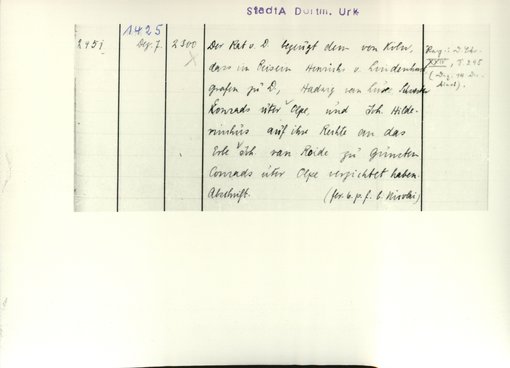 StadtA Dortm. Urk
1425
2451 Dez. 7. 2300 Der Rat v. D. bezeugt dem von Köln,
dass in Beisein Heinrichs v. Lindenhorst
grafen zu D., Hadwig van
Konrads üter Olpe, und Joh. Hilde-
rinhüs auf ihre Rechte an das
Erbe Joh. van Reide zu Gunsten
Conrads üter Olpe verzichtet haben.
Abschrift. (fer. 6. p. f. b. Nicolai)
XXIV, S. 245